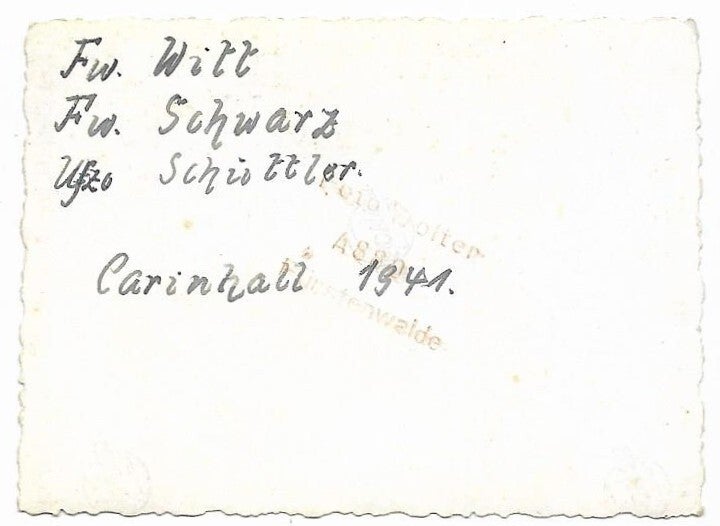 Fw. Witt
Fw. Schwarz
Uffzo Schüttler.
Carinhall 1941.
Fürstenwalde